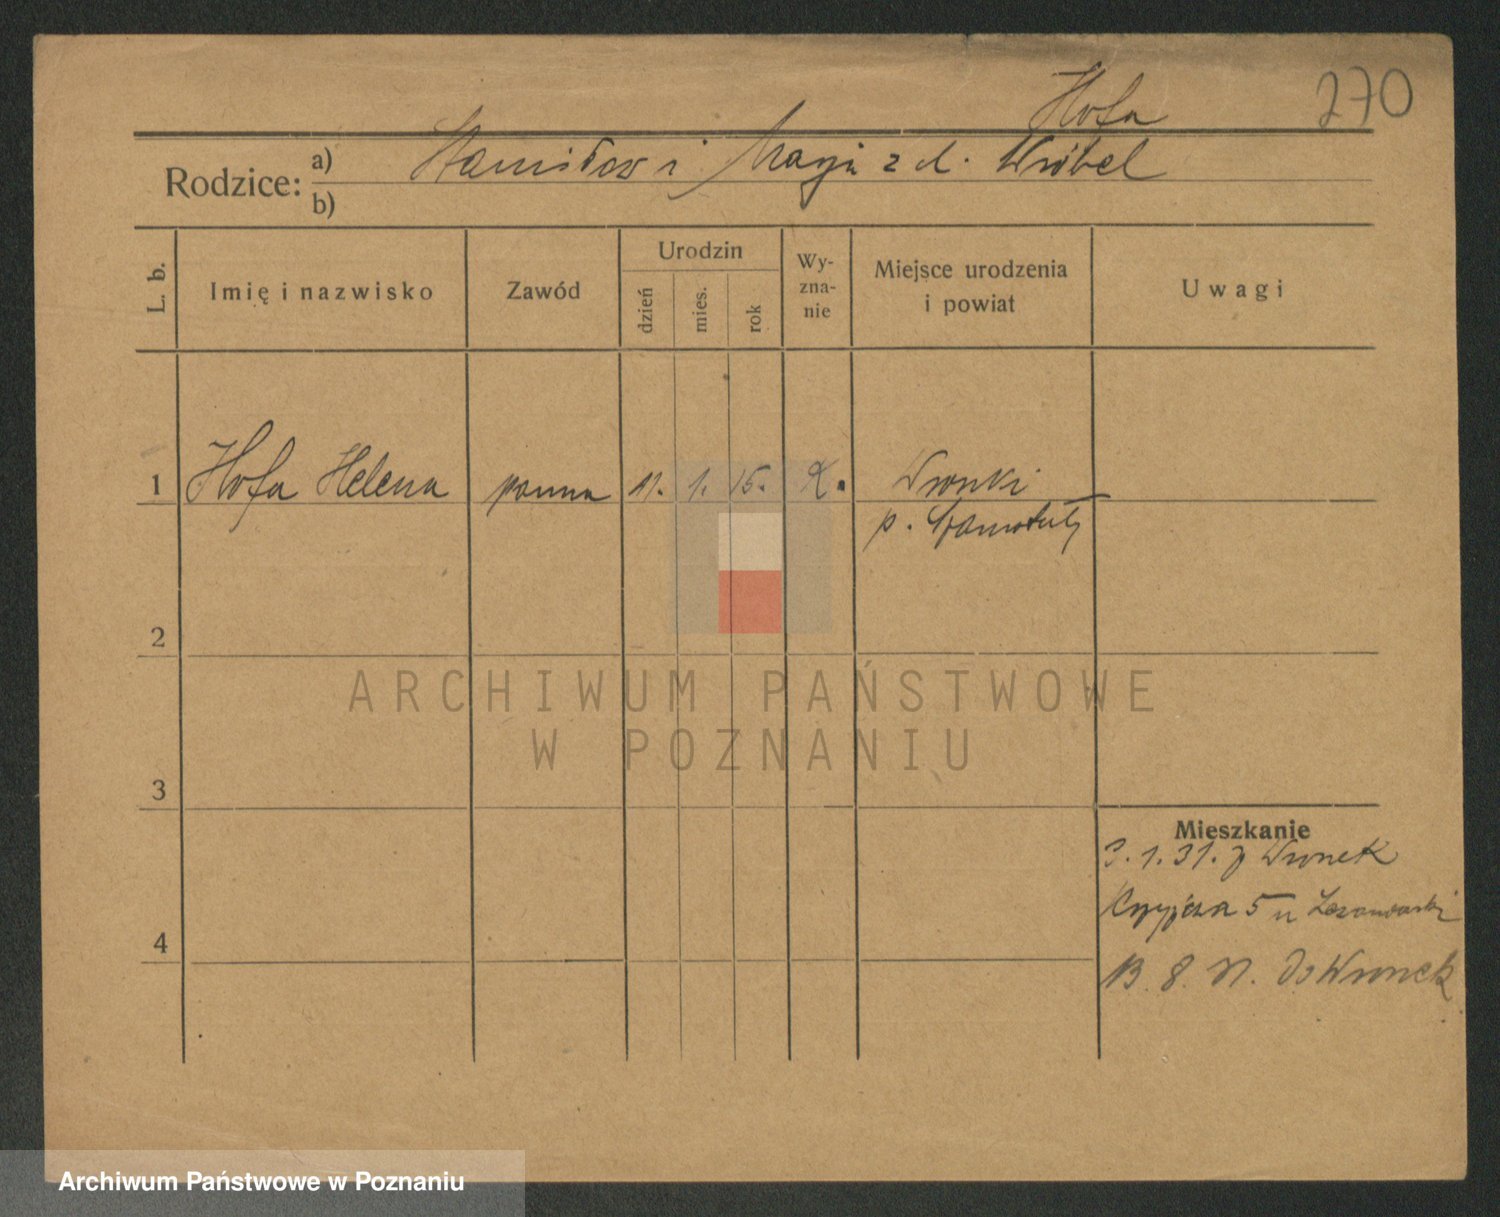 Hofa
270
Rodzice:
a) Stanisław i Maryi z d. Wróbel
b)
L. b.
Imię i nazwisko
Zawód
Urodzin
dzień
mies.
rok
Wy-
zna-
nie
Miejsce urodzenia
i powiat
Uwagi
1 Hofa Helena panna 11. 1. 15. K. Wronki
p. Szamotuły
2
ARCHIWUM PAŃSTWOWE
W POZNANIU
3
Mieszkanie
3. 1. 31. z Wronek
5 u
4
8. do Wronek
Archiwum Państwowe w Poznaniu